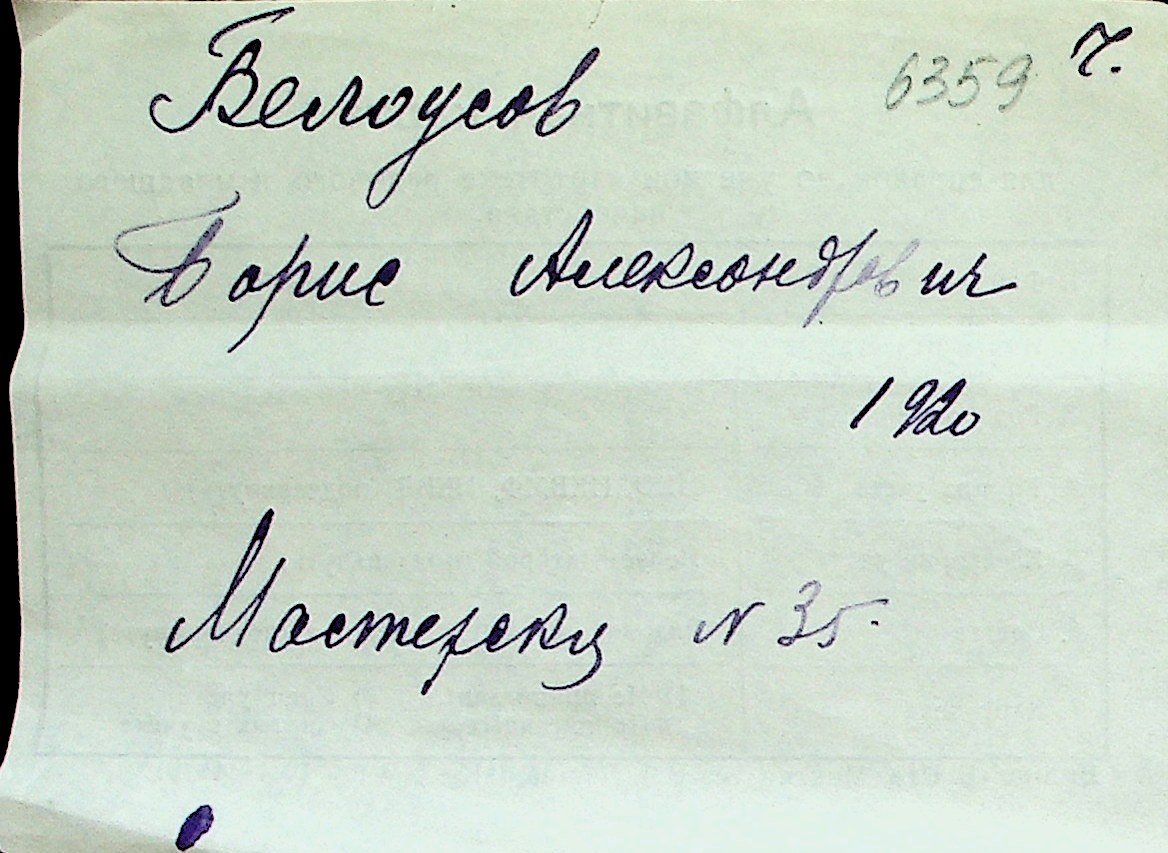 Белоусов 6359 ч.
Борис Александрович
1920
Мастерску N 35.